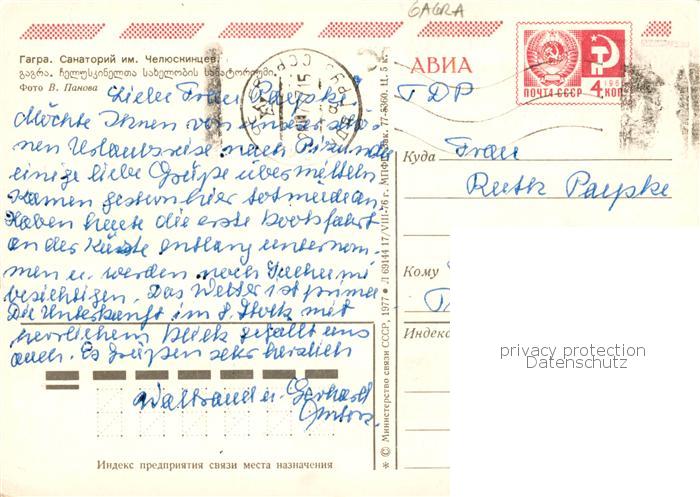 GAGRA
Гагра. Санаторий им. Челюскинцев.
გაგრა. ჩელუსკინელთა სახელობის სანატორიუმი.
Фото В. Панова
АВИА
ПОЧТА СССР 4 КОП
Liebe Frau Paepke!
Möchte Ihnen von unserer schö-
nen Urlaubsreise nach Pizunda
einige liebe Grüße übermitteln
Kamen gestern hier totmüde an.
Haben heute die erste Bootsfahrt
an der Küste entlang unternom-
men u. werden noch Suchumi
besichtigen. Das Wetter ist prima
Die Unterkunft im 8. Stock mit
herrlichem Blick gefällt uns
auch. Es grüßen sehr herzlich
Waltraud u. Gerhard
Куда
Frau
Ruth Paepke
Кому
Индекс
Индекс предприятия связи места назначения
* © Министерство связи СССР, 1977 ● Л 69144 17/VIII-76 г. МПФГ. Зак. 77-8360. Ц. 5 к.
privacy protection
Datenschutz